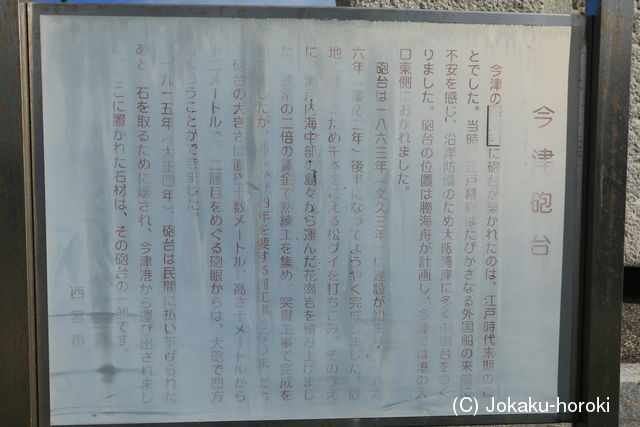 今津砲台
今津の に砲台が築かれたのは、江戸時代末期のこ
とでした。当時、江戸幕府はたびかさなる外国船の来航に
不安を感じ、沿岸防備のため大阪湾岸に多くの砲台をつく
りました。砲台の位置は勝海舟が計画し、今津では港の入
口東側におかれました。
砲台は一八六三年(文久三年)に建設が始まり、一八六
六年(慶応二年)後半になってようやく完成しました。砂
地 のため千本をこえる松グイを打ちこみ、そのうえ
に、瀬戸内海中部の島々から運んだ花崗岩を積み上げまし
た。通常の二倍の賃金で熟練工を集め、突貫工事で完成を
ましたが、 年を要する難工事になりました。
砲台の大きさは直径十数メートル、高さ十メートルから
十二メートルで、二層目をめぐる砲眼からは、大砲で四方
をねらうことができました。
一九一五年(大正四年)、砲台は民間に払い下げられた
あと、石を取るために壊され、今津港から運び出されまし
た。ここに置かれた石材は、その砲台の一部です。
西宮市
(C) Jokaku-horoki